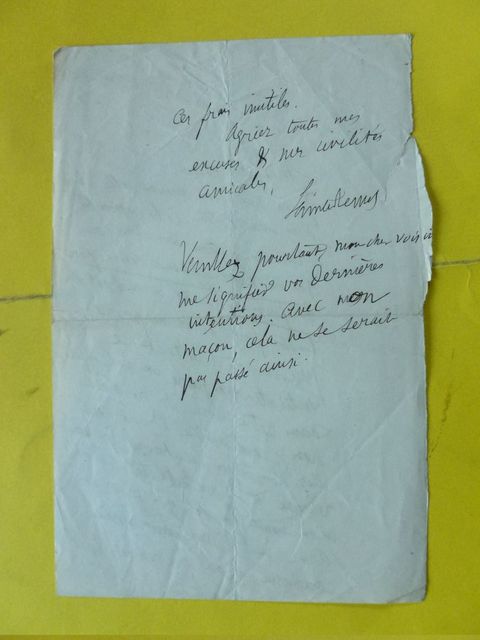 ces frais inutiles.
Agréez toutes mes
excuses & mes civilités
amicales,
Veuillez pourtant, mon cher voisin
me signifier vos dernières
intentions. Avec mon
macon, cela ne se serait
pas passé ainsi.